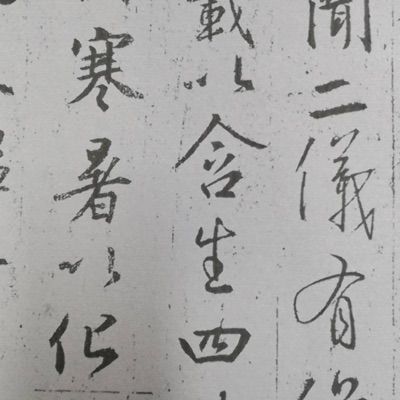 聞二儀有
載以含生四
寒暑以化